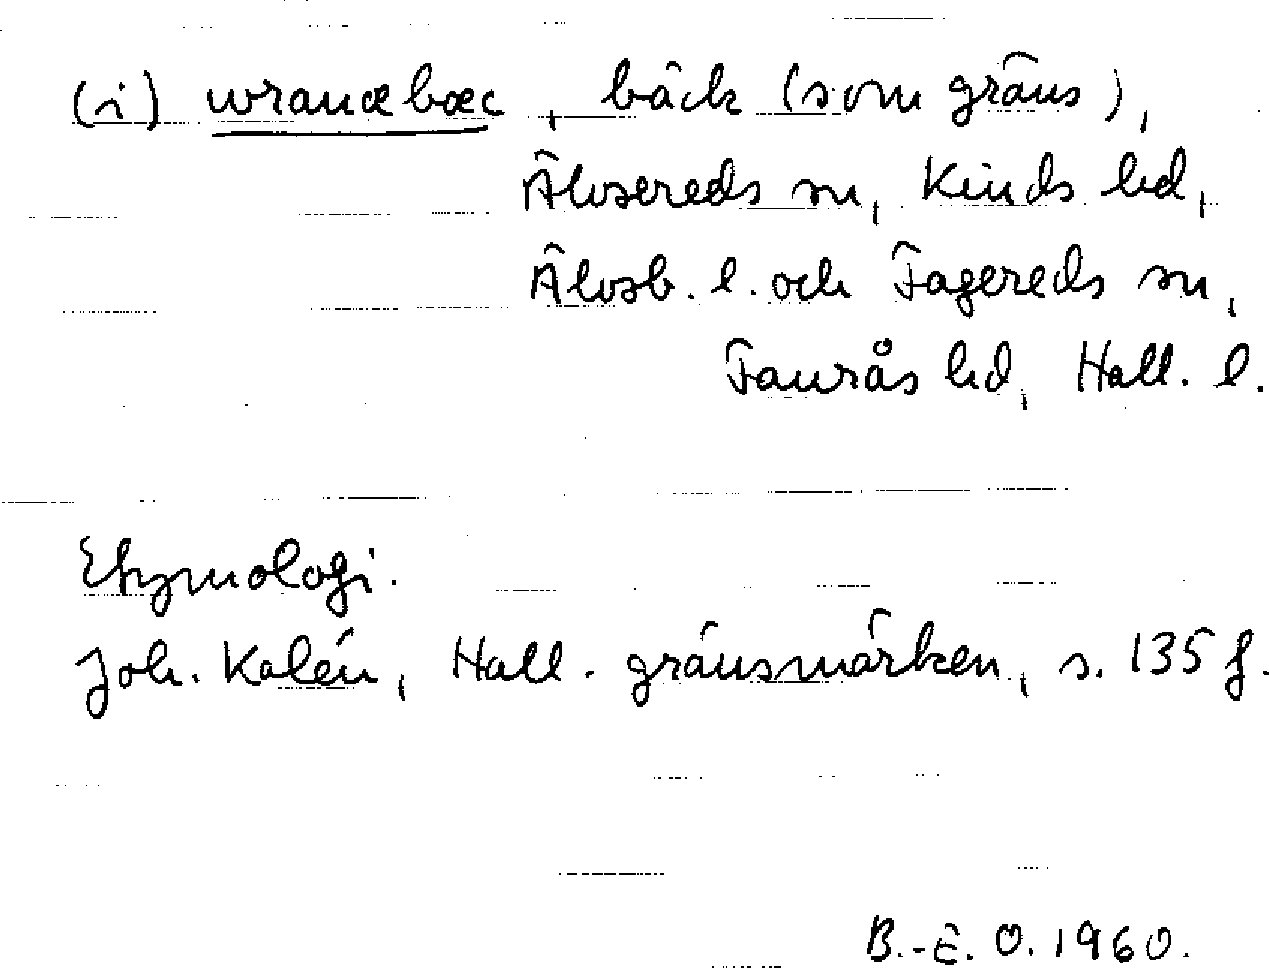 (i) wranæbæc, bäck (som gräns),
Älvsereds sn, Kinds hd,
Älvsb. l. och Fagereds sn,
Faurås hd, Hall. l.
Etymologi.
Joh. Kalén, Hall. gränsmärken, s. 135 f.
B.-E. O. 1960.